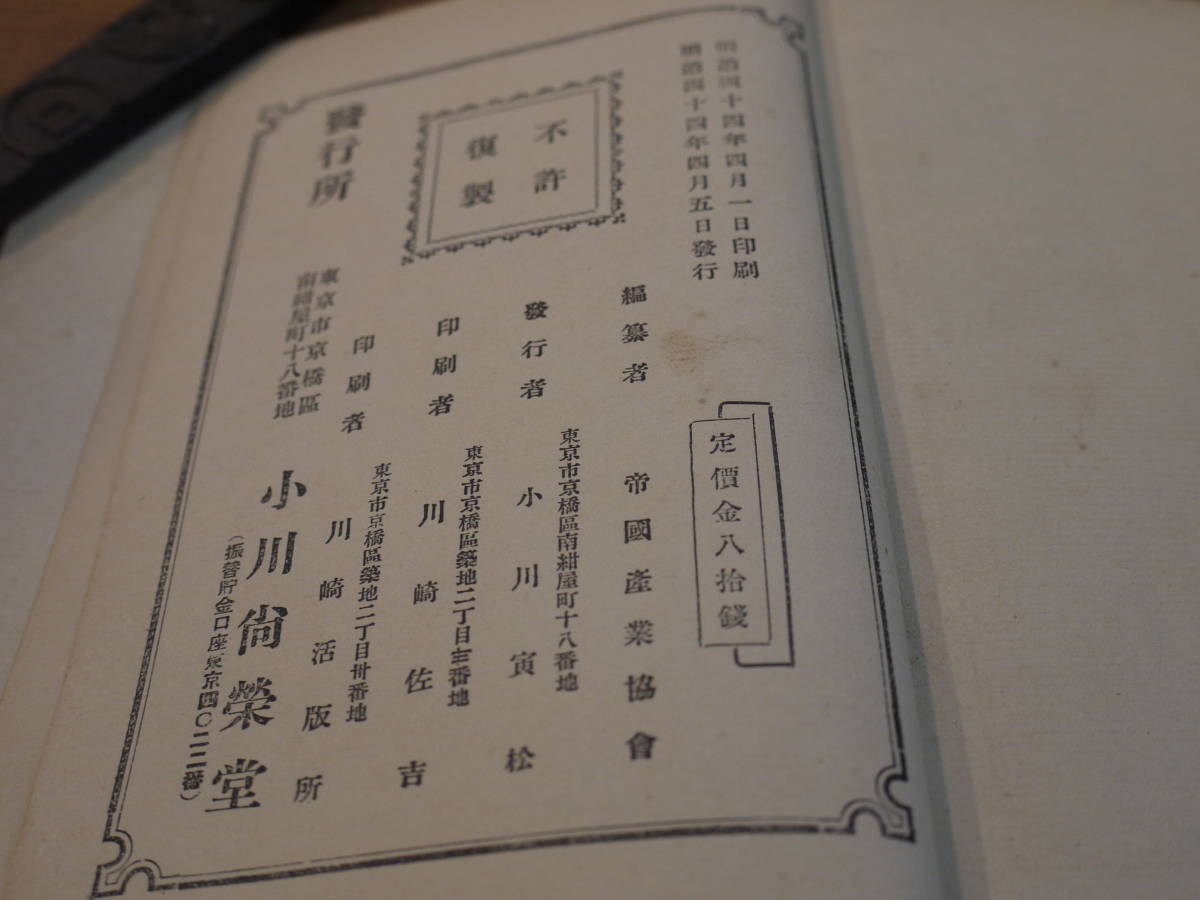 明治四十四年四月一日印刷
明治四十四年四月五日發行
定價金八拾錢
不許
復製
編纂者 帝國產業協會
東京市京橋區南紺屋町十八番地
發行者 小川寅松
東京市京橋區築地二丁目卅番地
印刷者 川崎佐吉
東京市京橋區築地二丁目卅番地
印刷者 川崎活版所
發行所
東京市京橋區
南紺屋町十八番地
小川尙榮堂
（振替貯金口座東京四〇二二番）